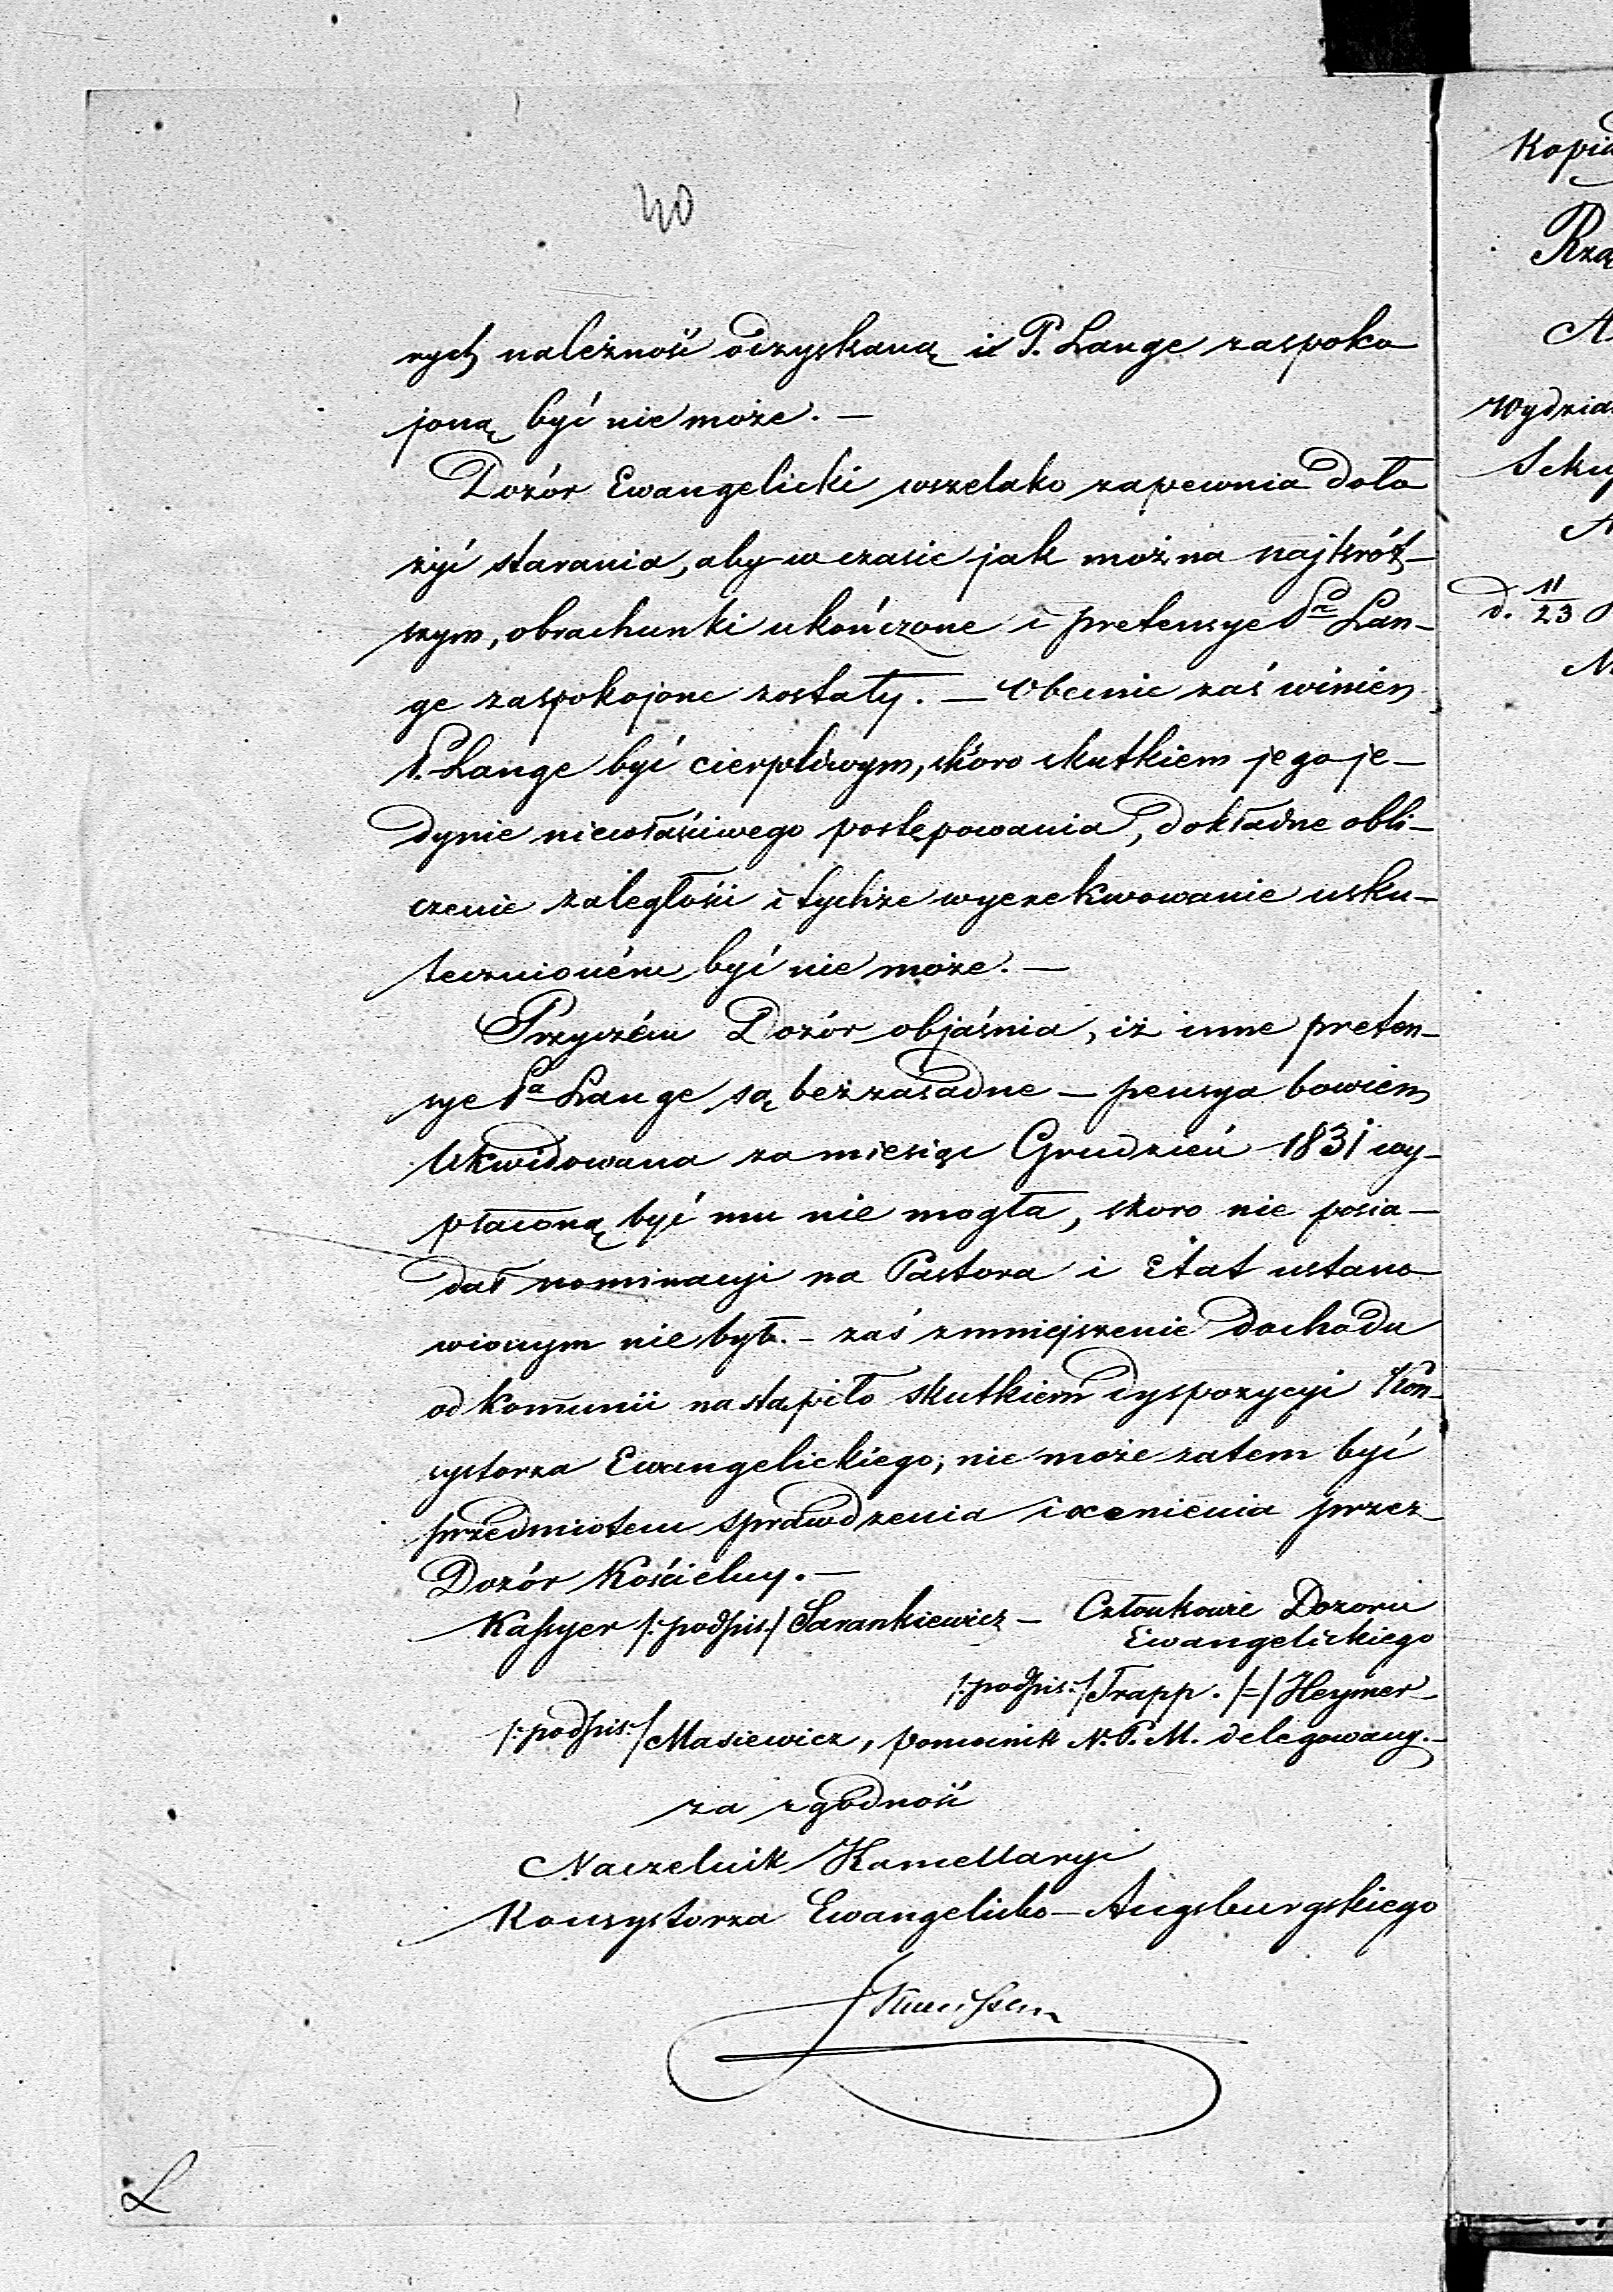 40
nych należność odzyskaną i P. Lange zaspoko
joną być nie może. —
Dozór Ewangelicki wszelako zapewnia doło
żyć starania, aby w czasie jak można najkrót-
szym, obrachunki ukończone i pretensye Pa Lan-
ge zaspokojone zostały. — Obecnie zaś winien
P. Lange być cierpliwym, skoro skutkiem jego je-
dynie niewłaściwego postępowania, dokładne obli-
czenie zaległości i tychże wyexekwowanie usku-
tecznioném być nie może. —
Przyczém Dozór objaśnia, iż inne preten-
sye Pa Lange są bezzasadne — pensya bowiem
likwidowana za miesiąc Grudzień 1831 wy-
płaconą być mu nie mogła, skoro nie posia-
dał nominacyi na Pastora i Etat ustano
wionym nie był. — zaś zmniejszenie dochodu
od komunii nastąpiło skutkiem dyspozycyi Kon-
systorza Ewangelickiego, nie może zatem być
przedmiotem sprawdzenia i ocenienia przez
Dozór Kościelny. —
Kassyer /:podpis:/ Sarankiewicz — Członkowie Dozoru
Ewangelickiego
/:podpis:/ Trapp. /=/ Heymer
/:podpis:/ Masiewicz, pomocnik N. P. M. delegowany. —
za zgodność
Naczelnik Kancellaryi
Konsystorza Ewangelicko-Augsburgskiego
L
Kopia
Rzą
Wydzia
Seku
d. 11/23